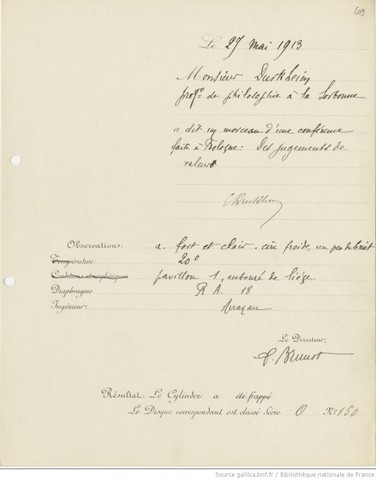 Le 27 mai 1913
Monsieur Durkheim
profr. de philosophie à la Sorbonne
a dit un morceau d'une conférence
faite à Bologne : Des jugements de
valeur
Observations: a. fort et clair. cire froide, un peu de bruit
Température: 20°
Conditions atmosphériques pavillon 1, entouré de liège
Diaphragme R. A. 18
Ingénieur: Arragau
Le Directeur,
F. Brunot
Résultat: Le Cylindre a de frappé
Le Disque correspondant est classé Série O No 150
Source gallica.bnf.fr / Bibliothèque nationale de France